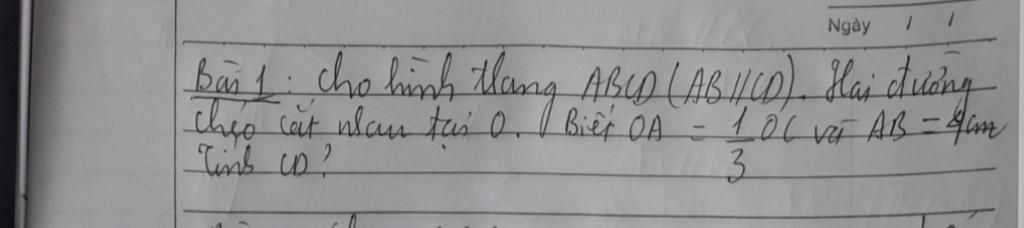 Ngày / /
Bài 1: Cho hình thang ABCD (AB//CD). Hai đường
chéo cắt nhau tại O. Biết OA = 1/3 OC và AB = 4cm
Tính CD?